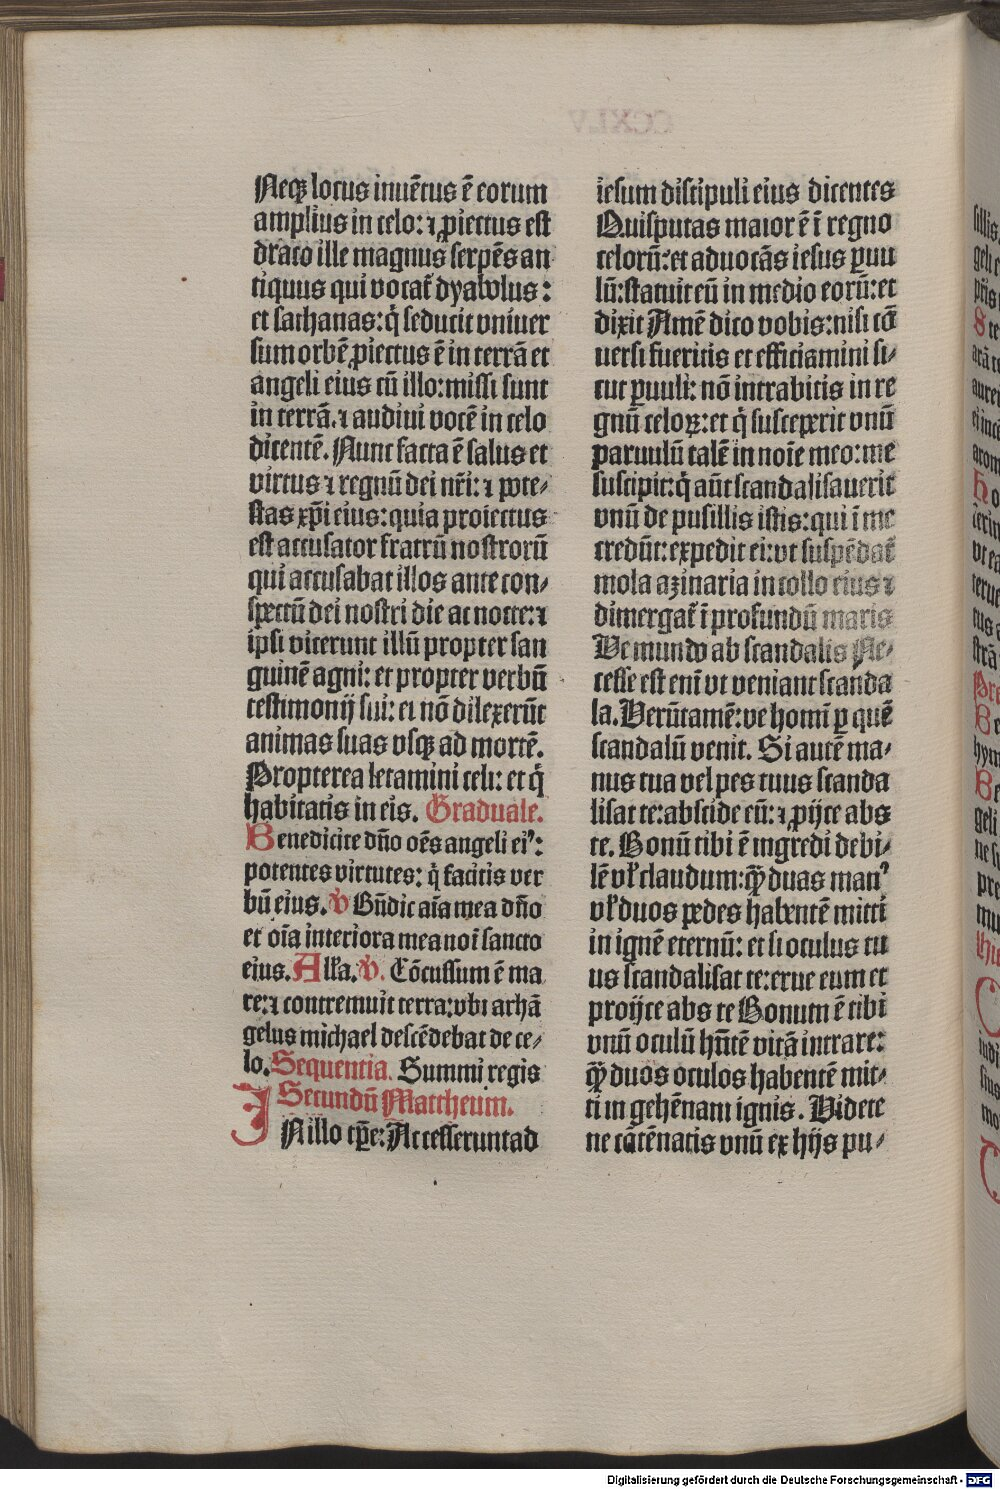 Neqꝫ locus inuētus ē eorum
amplius in celo: ⁊ ꝓiectus est
draco ille magnus serpēs an
tiquus qui vocat̄ dyabolus:
et sathanas: q̄ seducit vniuer
sum orbē ꝓiectus ē in terrā et
angeli eius cū illo: missi sunt
in terrā. ⁊ audiui vocē in celo
dicentē. Nunc facta ē salus et
virtus ⁊ regnū dei nr̄i: ⁊ pote⸗
stas xp̄i eius: quia proiectus
est accusator fratrū nostrorū
qui accusabat illos ante con⸗
spectū dei nostri die ac nocte: ⁊
ipsi vicerunt illū propter san
guinē agni: et propter verbū
testimonij sui: et nō dilexerūt
animas suas vsqꝫ ad mortē.
Propterea letamini celi: et q̄
habitatis in eis. Graduale.
Benedicite dn̄o oēs angeli eiꝰ:
potentes virtutes: q̄ facitis ver
bū eius. V Bn̄dic aīa mea dn̄o
et oīa interiora mea noī sancto
eius. Alla. V. Cōcussum ē ma
re: ⁊ contremuit terra: vbi archā
gelus michael descēdebat de ce⸗
lo. Sequentia. Summi regis
Secundū Mattheum.
IN illo tp̄e: Accesserunt ad
iesum discipuli eius dicentes
Quis putas maior ē ī regno
celorū: et aduocās iesus ꝑuu
lū: statuit eū in medio eorū: et
dixit Amē dico vobis: nisi cō
uersi fueritis et efficiamini si⸗
cut ꝑuuli: nō intrabitis in re
gnū celoꝝ: et q̄ susceperit vnū
paruulū talē in noīe meo: me
suscipit: q̄ aūt scandalisauerit
vnū de pusillis istis: qui ī me
credūt: expedit ei: vt suspēdat̄
mola azinaria in collo eius ⁊
dimergat̄ ī profundū maris
Ve mundo ab scandalis Ne⸗
cesse est enī vt veniant scanda
la. Verūtamē: ve homī ꝑ quē
scandalū venit. Si autē ma⸗
nus tua vel pes tuus scanda
lisat te: abscide eū: ⁊ ꝓijce abs
te. Bonū tibi ē ingredi debi⸗
lē vl̓ claudum: qꝫ̄ duas manꝰ
vl̓ duos pedes habentē mitti
in ignē eternū: et si oculus tu
us scandalisat te: erue eum et
proijce abs te Bonum ē tibi
vnū oculū hn̄tē vitā intrare:
qꝫ̄ duos oculos habentē mit⸗
ti in gehēnam ignis. Videte
ne cōtēnatis vnū ex hijs pu⸗
Digitalisierung gefördert durch die Deutsche Forschungsgemeinschaft - DFG